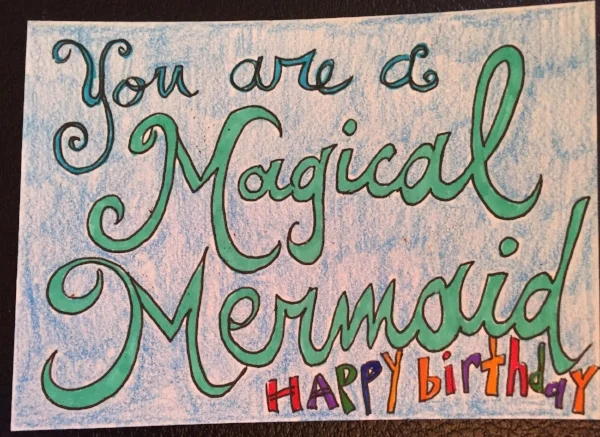 You are a
Magical
Mermaid
HAPPY birthdaY